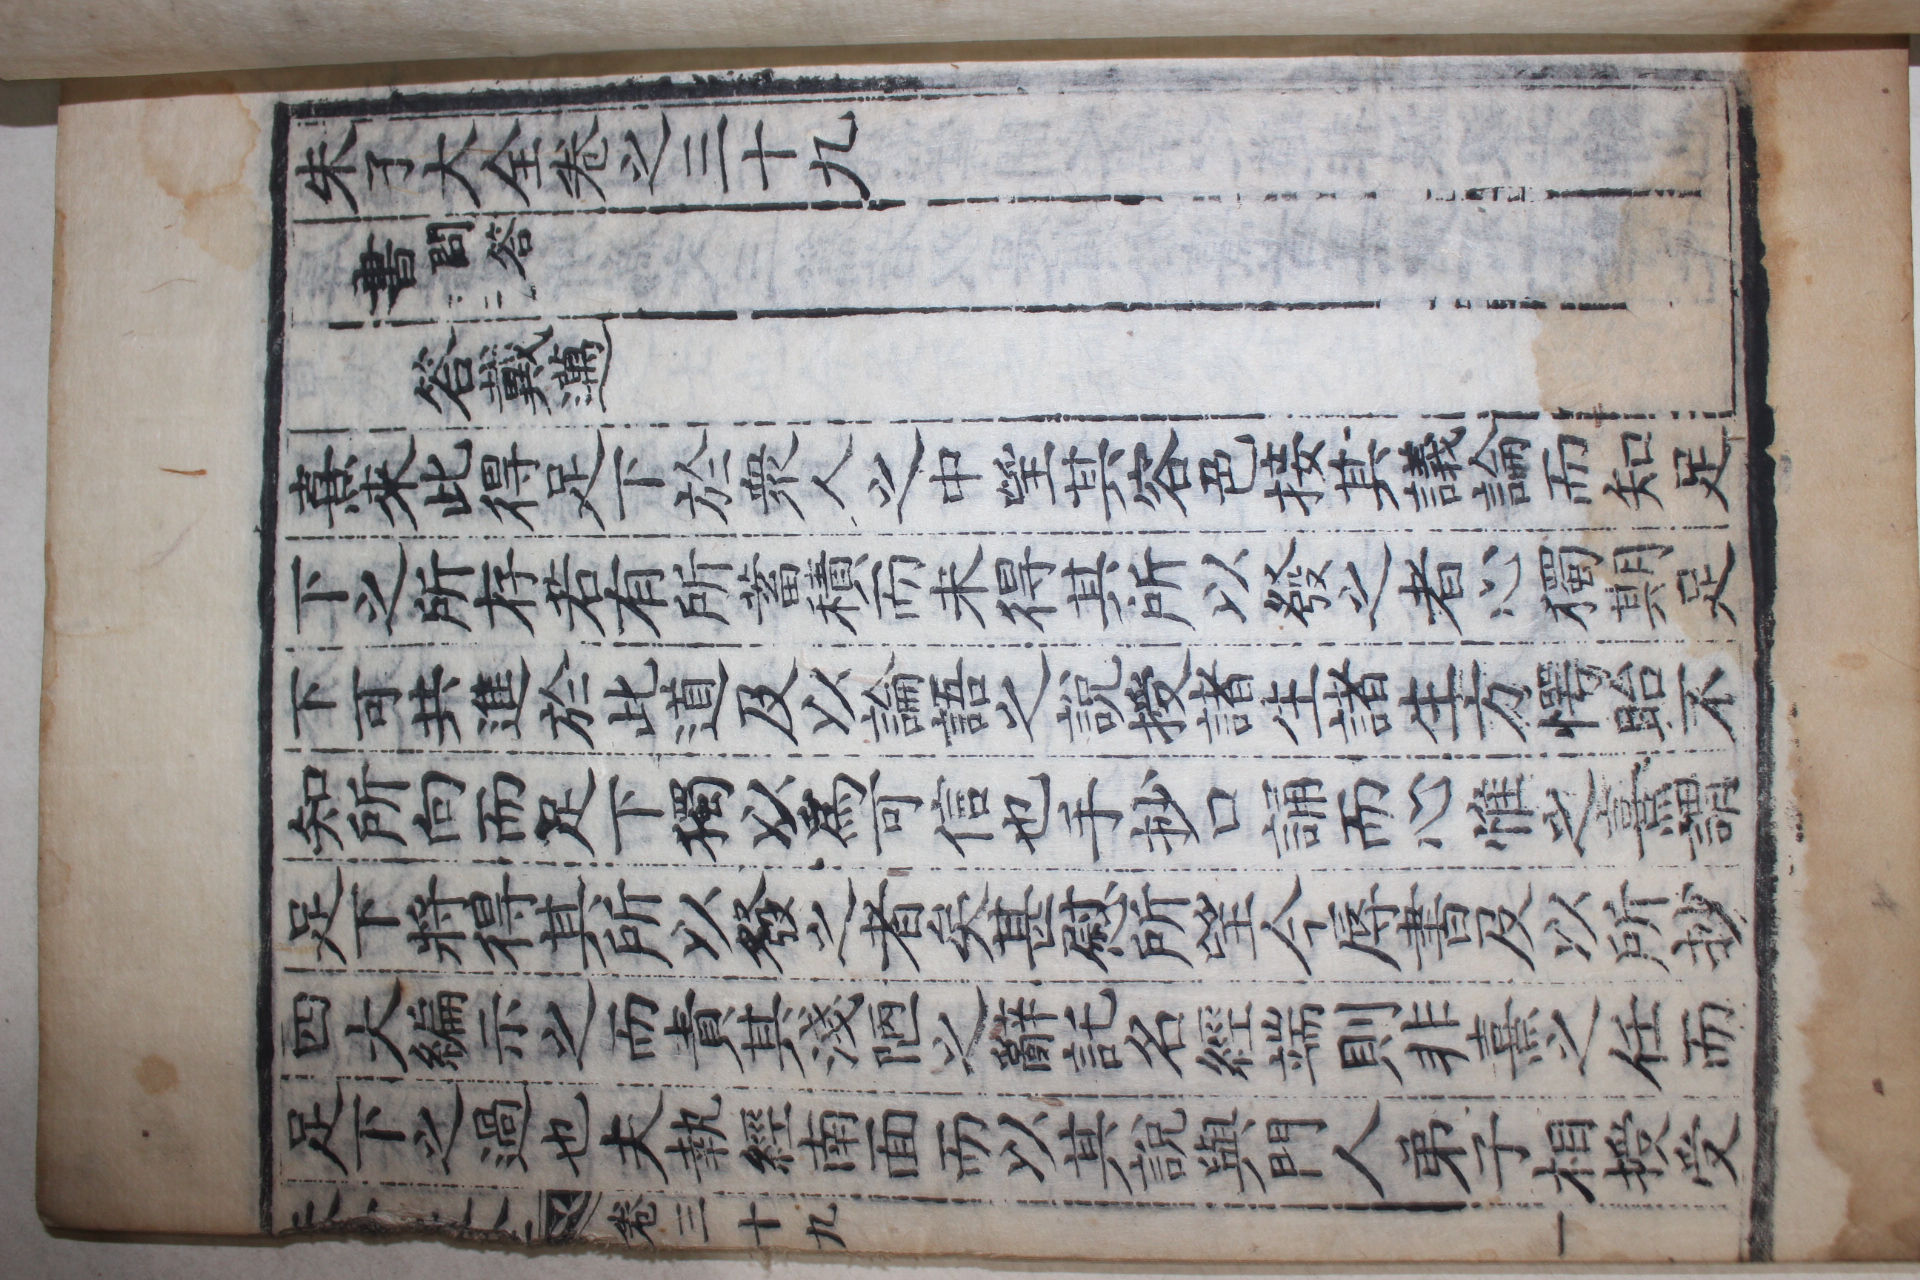 朱子大全卷之三十九
書問答
答戴邁
熹來此得足下於衆人之中望其容色接其議論而知足
下之所存若有所蓄積而未得其所以發之者心獨期足
下可共進於此道及以論語之說授諸生諸生方愕眙不
知所向而足下獨以爲可信也手抄口誦而心惟之熹謂
足下將得其所以發之者矣甚慰所望今辱書及以所抄
四大編示之而責其淺陋之辭託名經端則非熹之任而
足下之過也夫執經南面而以其說與門人弟子相授受
卷三十九
一